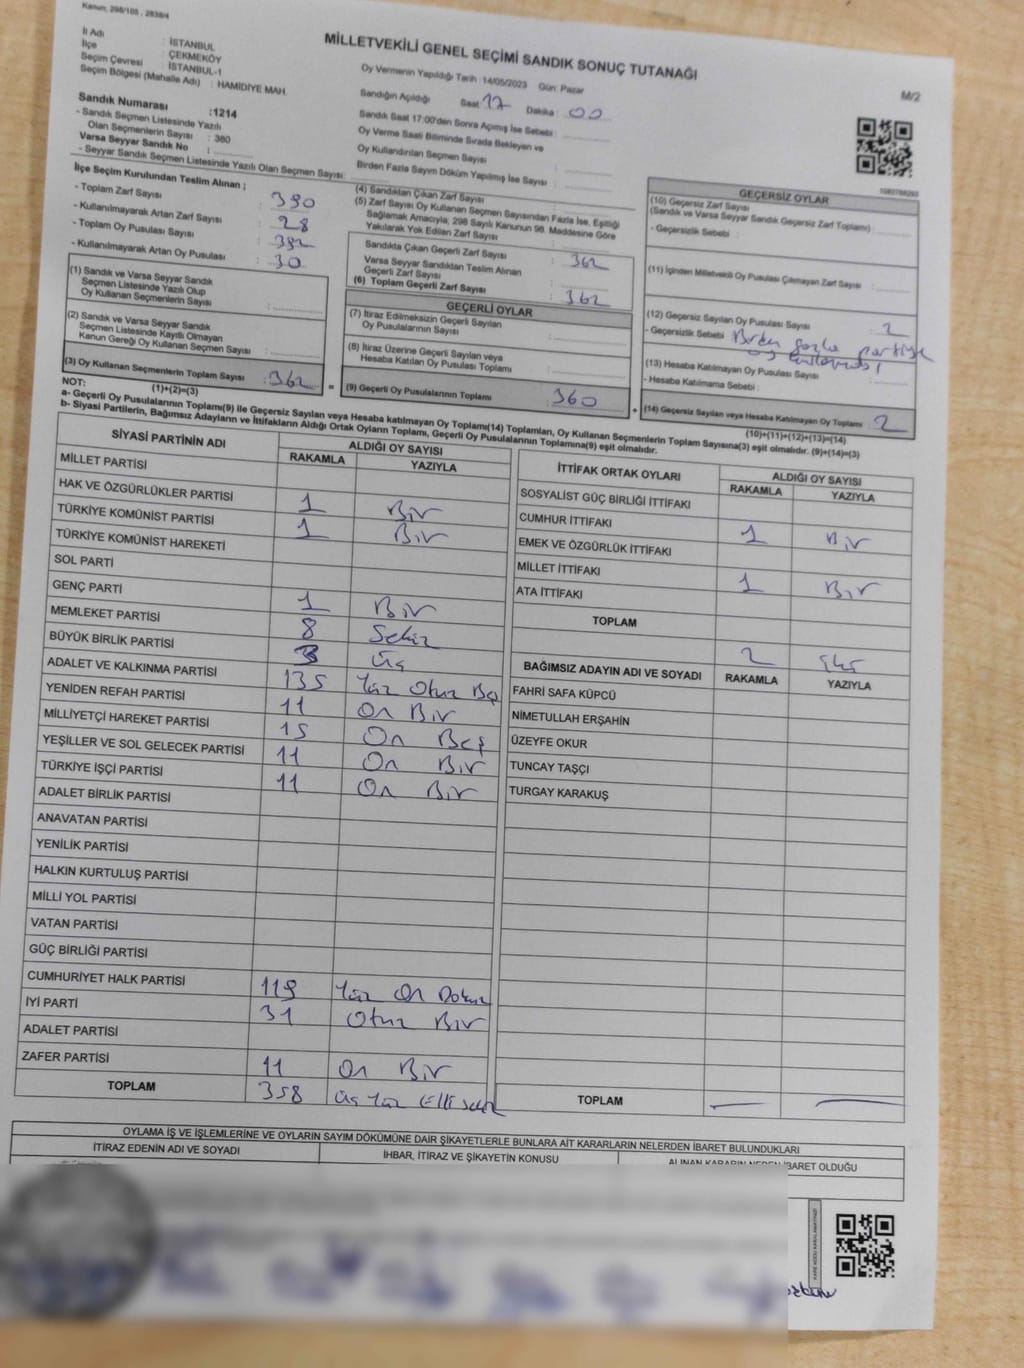 Kanun: 298/105 , 2839/4
MİLLETVEKİLİ GENEL SEÇİMİ SANDIK SONUÇ TUTANAĞI
M/2
İl Adı : İSTANBUL
İlçe : ÇEKMEKÖY
Seçim Çevresi : İSTANBUL-1
Seçim Bölgesi (Mahalle Adı) : HAMİDİYE MAH.
Sandık Numarası :1214
- Sandık Seçmen Listesinde Yazılı
Olan Seçmenlerin Sayısı : 380
Varsa Seyyar Sandık No :
- Seyyar Sandık Seçmen Listesinde Yazılı Olan Seçmen Sayısı:
Oy Vermenin Yapıldığı Tarih : 14/05/2023 Gün: Pazar
Sandığın Açıldığı Saat 17 Dakika : 00
Sandık Saat 17:00'den Sonra Açımış İse Sebebi :
Oy Verme Saati Bitiminde Sırada Bekleyen ve
Oy Kullandırılan Seçmen Sayısı :
Birden Fazla Sayım Döküm Yapılmış İse Sayısı :
İlçe Seçim Kurulundan Teslim Alınan ;
- Toplam Zarf Sayısı : 390
- Kullanılmayarak Artan Zarf Sayısı : 28
- Toplam Oy Pusulası Sayısı : 392
- Kullanılmayarak Artan Oy Pusulası : 30
(1) Sandık ve Varsa Seyyar Sandık
Seçmen Listesinde Yazılı Olup
Oy Kullanan Seçmenlerin Sayısı :
(2) Sandık ve Varsa Seyyar Sandık
Seçmen Listesinde Kayıtlı Olmayan
Kanun Gereği Oy Kullanan Seçmen Sayısı :
(3) Oy Kullanan Seçmenlerin Toplam Sayısı : 362
(1)+(2)=(3)
(4) Sandıktan Çıkan Zarf Sayısı :
(5) Zarf Sayısı Oy Kullanan Seçmen Sayısından Fazla İse, Eşitliği
Sağlamak Amacıyla; 298 Sayılı Kanunun 98. Maddesine Göre
Yakılarak Yok Edilen Zarf Sayısı :
Sandıkta Çıkan Geçerli Zarf Sayısı : 362
Varsa Seyyar Sandıktan Teslim Alınan
Geçerli Zarf Sayısı :
(6) Toplam Geçerli Zarf Sayısı : 362
GEÇERLİ OYLAR
(7) İtiraz Edilmeksizin Geçerli Sayılan
Oy Pusulalarının Sayısı :
(8) İtiraz Üzerine Geçerli Sayılan veya
Hesaba Katılan Oy Pusulası Toplamı :
= (9) Geçerli Oy Pusulalarının Toplamı : 360
GEÇERSİZ OYLAR
(10) Geçersiz Zarf Sayısı
(Sandık ve Varsa Seyyar Sandık Geçersiz Zarf Toplamı) :
- Geçersizlik Sebebi :
(11) İçinden Milletvekili Oy Pusulası Çıkmayan Zarf Sayısı :
(12) Geçersiz Sayılan Oy Pusulası Sayısı : 2
- Geçersizlik Sebebi : Birden fazla partiye
oy kullanılması
(13) Hesaba Katılmayan Oy Pusulası Sayısı :
- Hesaba Katılmama Sebebi :
+ (14) Geçersiz Sayılan veya Hesaba Katılmayan Oy Toplamı : 2
(10)+(11)+(12)+(13)=(14)
NOT:
a- Geçerli Oy Pusulalarının Toplamı(9) ile Geçersiz Sayılan veya Hesaba katılmayan Oy Toplamı(14) Toplamları, Oy Kullanan Seçmenlerin Toplam Sayısına(3) eşit olmalıdır. (9)+(14)=(3)
b- Siyasi Partilerin, Bağımsız Adayların ve İttifakların Aldığı Ortak Oyların Toplamı, Geçerli Oy Pusulalarının Toplamına(9) eşit olmalıdır.
SİYASİ PARTİNİN ADI ALDIĞI OY SAYISI
RAKAMLA YAZIYLA
MİLLET PARTİSİ
HAK VE ÖZGÜRLÜKLER PARTİSİ 1 Bir
TÜRKİYE KOMÜNİST PARTİSİ 1 Bir
TÜRKİYE KOMÜNİST HAREKETİ
SOL PARTİ
GENÇ PARTİ 1 Bir
MEMLEKET PARTİSİ 8 Sekiz
BÜYÜK BİRLİK PARTİSİ 3 Üç
ADALET VE KALKINMA PARTİSİ 135 Yüz Otuz Beş
YENİDEN REFAH PARTİSİ 11 On Bir
MİLLİYETÇİ HAREKET PARTİSİ 15 On Beş
YEŞİLLER VE SOL GELECEK PARTİSİ 11 On Bir
TÜRKİYE İŞÇİ PARTİSİ 11 On Bir
ADALET BİRLİK PARTİSİ
ANAVATAN PARTİSİ
YENİLİK PARTİSİ
HALKIN KURTULUŞ PARTİSİ
MİLLİ YOL PARTİSİ
VATAN PARTİSİ
GÜÇ BİRLİĞİ PARTİSİ
CUMHURİYET HALK PARTİSİ 119 Yüz On Dokuz
İYİ PARTİ 31 Otuz Bir
ADALET PARTİSİ
ZAFER PARTİSİ 11 On Bir
TOPLAM 358 Üç Yüz Elli Sekiz
İTTİFAK ORTAK OYLARI ALDIĞI OY SAYISI
RAKAMLA YAZIYLA
SOSYALİST GÜÇ BİRLİĞİ İTTİFAKI
CUMHUR İTTİFAKI 1 Bir
EMEK VE ÖZGÜRLÜK İTTİFAKI
MİLLET İTTİFAKI 1 Bir
ATA İTTİFAKI
TOPLAM 2 iki
BAĞIMSIZ ADAYIN ADI VE SOYADI RAKAMLA YAZIYLA
FAHRİ SAFA KÜPCÜ
NİMETULLAH ERŞAHİN
ÜZEYFE OKUR
TUNCAY TAŞÇI
TURGAY KARAKUŞ
TOPLAM — —
OYLAMA İŞ VE İŞLEMLERİNE VE OYLARIN SAYIM DÖKÜMÜNE DAİR ŞİKAYETLERLE BUNLARA AİT KARARLARIN NELERDEN İBARET BULUNDUKLARI
İTİRAZ EDENİN ADI VE SOYADI İHBAR, İTİRAZ VE ŞİKAYETİN KONUSU ALINAN KARARIN NEDEN İBARET OLDUĞU